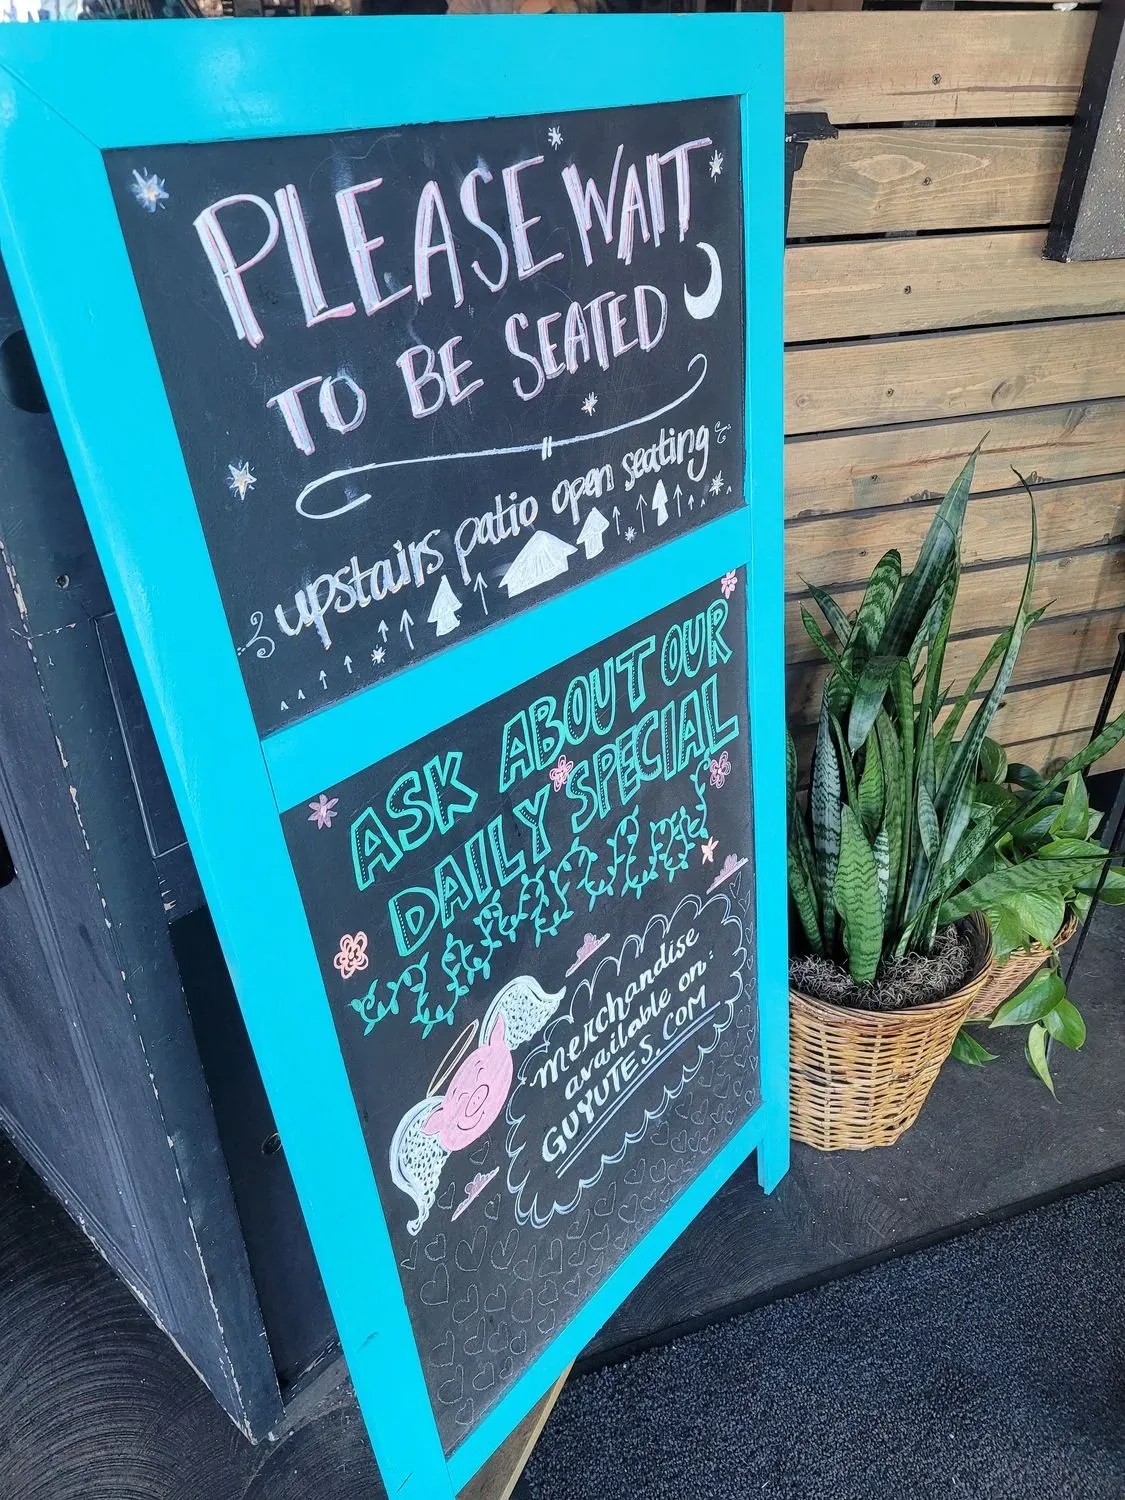 PLEASE WAIT
TO BE SEATED
upstairs patio open seating
ASK ABOUT OUR
DAILY SPECIAL
merchandise
available on:
GUYUTES.COM